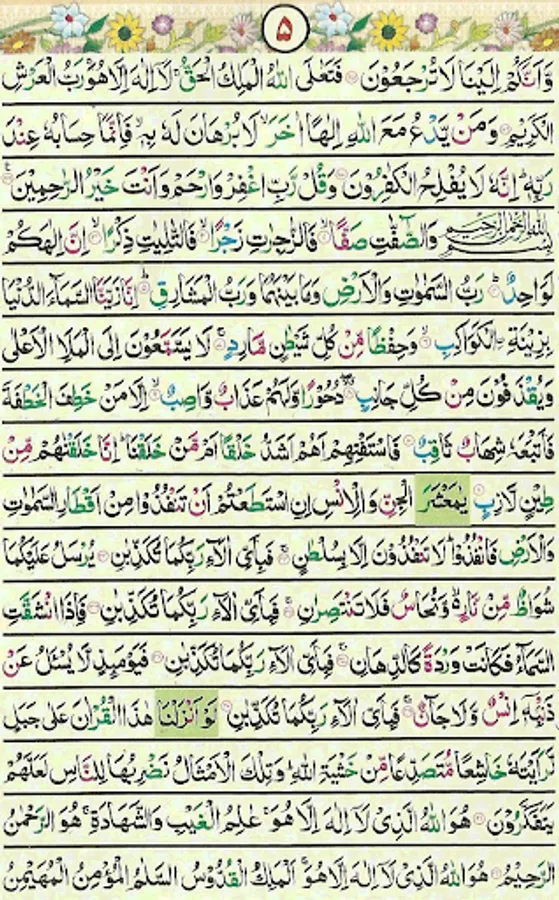 ۵
وَّاَنَّكُمْ اِلَيْنَا لَا تُرْجَعُوْنَ فَتَعٰلَى اللّٰهُ الْمَلِكُ الْحَقُّ ۚ لَاۤ اِلٰهَ اِلَّا هُوَ ۚ رَبُّ الْعَرْشِ
الْكَرِيْمِ وَمَنْ يَّدْعُ مَعَ اللّٰهِ اِلٰهًا اٰخَرَ ۙ لَا بُرْهَانَ لَهٗ بِهٖ ۙ فَاِنَّمَا حِسَابُهٗ عِنْدَ
رَبِّهٖ ؕ اِنَّهٗ لَا يُفْلِحُ الْكٰفِرُوْنَ وَقُلْ رَّبِّ اغْفِرْ وَارْحَمْ وَاَنْتَ خَيْرُ الرّٰحِمِيْنَ
بِسْمِ اللّٰهِ الرَّحْمٰنِ الرَّحِيْمِ وَالصّٰٓفّٰتِ صَفًّا ۙ فَالزّٰجِرٰتِ زَجْرًا ۙ فَالتّٰلِيٰتِ ذِكْرًا ۙ اِنَّ اِلٰهَكُمْ
لَوَاحِدٌ ؕ رَبُّ السَّمٰوٰتِ وَالْاَرْضِ وَمَا بَيْنَهُمَا وَرَبُّ الْمَشَارِقِ ؕ اِنَّا زَيَّنَّا السَّمَآءَ الدُّنْيَا
بِزِيْنَةِ ۨالْكَوَاكِبِ ۙ وَحِفْظًا مِّنْ كُلِّ شَيْطٰنٍ مَّارِدٍ ۚ لَا يَسَّمَّعُوْنَ اِلَى الْمَلَاِ الْاَعْلٰى
وَيُقْذَفُوْنَ مِنْ كُلِّ جَانِبٍ دُحُوْرًا وَّلَهُمْ عَذَابٌ وَّاصِبٌ ۙ اِلَّا مَنْ خَطِفَ الْخَطْفَةَ
فَاَتْبَعَهٗ شِهَابٌ ثَاقِبٌ فَاسْتَفْتِهِمْ اَهُمْ اَشَدُّ خَلْقًا اَمْ مَّنْ خَلَقْنَا ؕ اِنَّا خَلَقْنٰهُمْ مِّنْ
طِيْنٍ لَّازِبٍ يٰمَعْشَرَ الْجِنِّ وَالْاِنْسِ اِنِ اسْتَطَعْتُمْ اَنْ تَنْفُذُوْا مِنْ اَقْطَارِ السَّمٰوٰتِ
وَالْاَرْضِ فَانْفُذُوْا ؕ لَا تَنْفُذُوْنَ اِلَّا بِسُلْطٰنٍ ۚ فَبِاَيِّ اٰلَآءِ رَبِّكُمَا تُكَذِّبٰنِ يُرْسَلُ عَلَيْكُمَا
شُوَاظٌ مِّنْ نَّارٍ ۙ وَّنُحَاسٌ فَلَا تَنْتَصِرٰنِ ۚ فَبِاَيِّ اٰلَآءِ رَبِّكُمَا تُكَذِّبٰنِ فَاِذَا انْشَقَّتِ
السَّمَآءُ فَكَانَتْ وَرْدَةً كَالدِّهَانِ ۚ فَبِاَيِّ اٰلَآءِ رَبِّكُمَا تُكَذِّبٰنِ فَيَوْمَئِذٍ لَّا يُسْئَلُ عَنْ
ذَنْۢبِهٖۤ اِنْسٌ وَّلَا جَآنٌّ ۚ فَبِاَيِّ اٰلَآءِ رَبِّكُمَا تُكَذِّبٰنِ لَوْ اَنْزَلْنَا هٰذَا الْقُرْاٰنَ عَلٰى جَبَلٍ
لَّرَاَيْتَهٗ خَاشِعًا مُّتَصَدِّعًا مِّنْ خَشْيَةِ اللّٰهِ ؕ وَتِلْكَ الْاَمْثَالُ نَضْرِبُهَا لِلنَّاسِ لَعَلَّهُمْ
يَتَفَكَّرُوْنَ هُوَ اللّٰهُ الَّذِيْ لَاۤ اِلٰهَ اِلَّا هُوَ ۚ عٰلِمُ الْغَيْبِ وَالشَّهَادَةِ ۚ هُوَ الرَّحْمٰنُ
الرَّحِيْمُ هُوَ اللّٰهُ الَّذِيْ لَاۤ اِلٰهَ اِلَّا هُوَ ۚ اَلْمَلِكُ الْقُدُّوْسُ السَّلٰمُ الْمُؤْمِنُ الْمُهَيْمِنُ